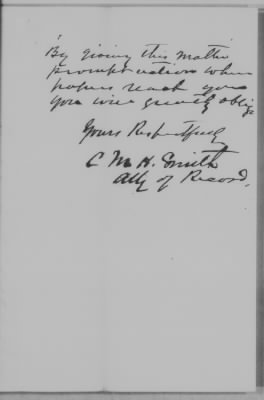 By giving this matter
prompt action when
papers reach you
you will greatly oblige
Yours Respectfully
C M H. Smith
Atty of Record,